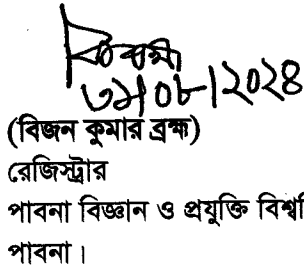 ০৮।২০২৪
(বিজন কুমার ব্রহ্ম)
রেজিস্ট্রার
পাবনা বিজ্ঞান ও প্রযুক্তি
পাবনা।